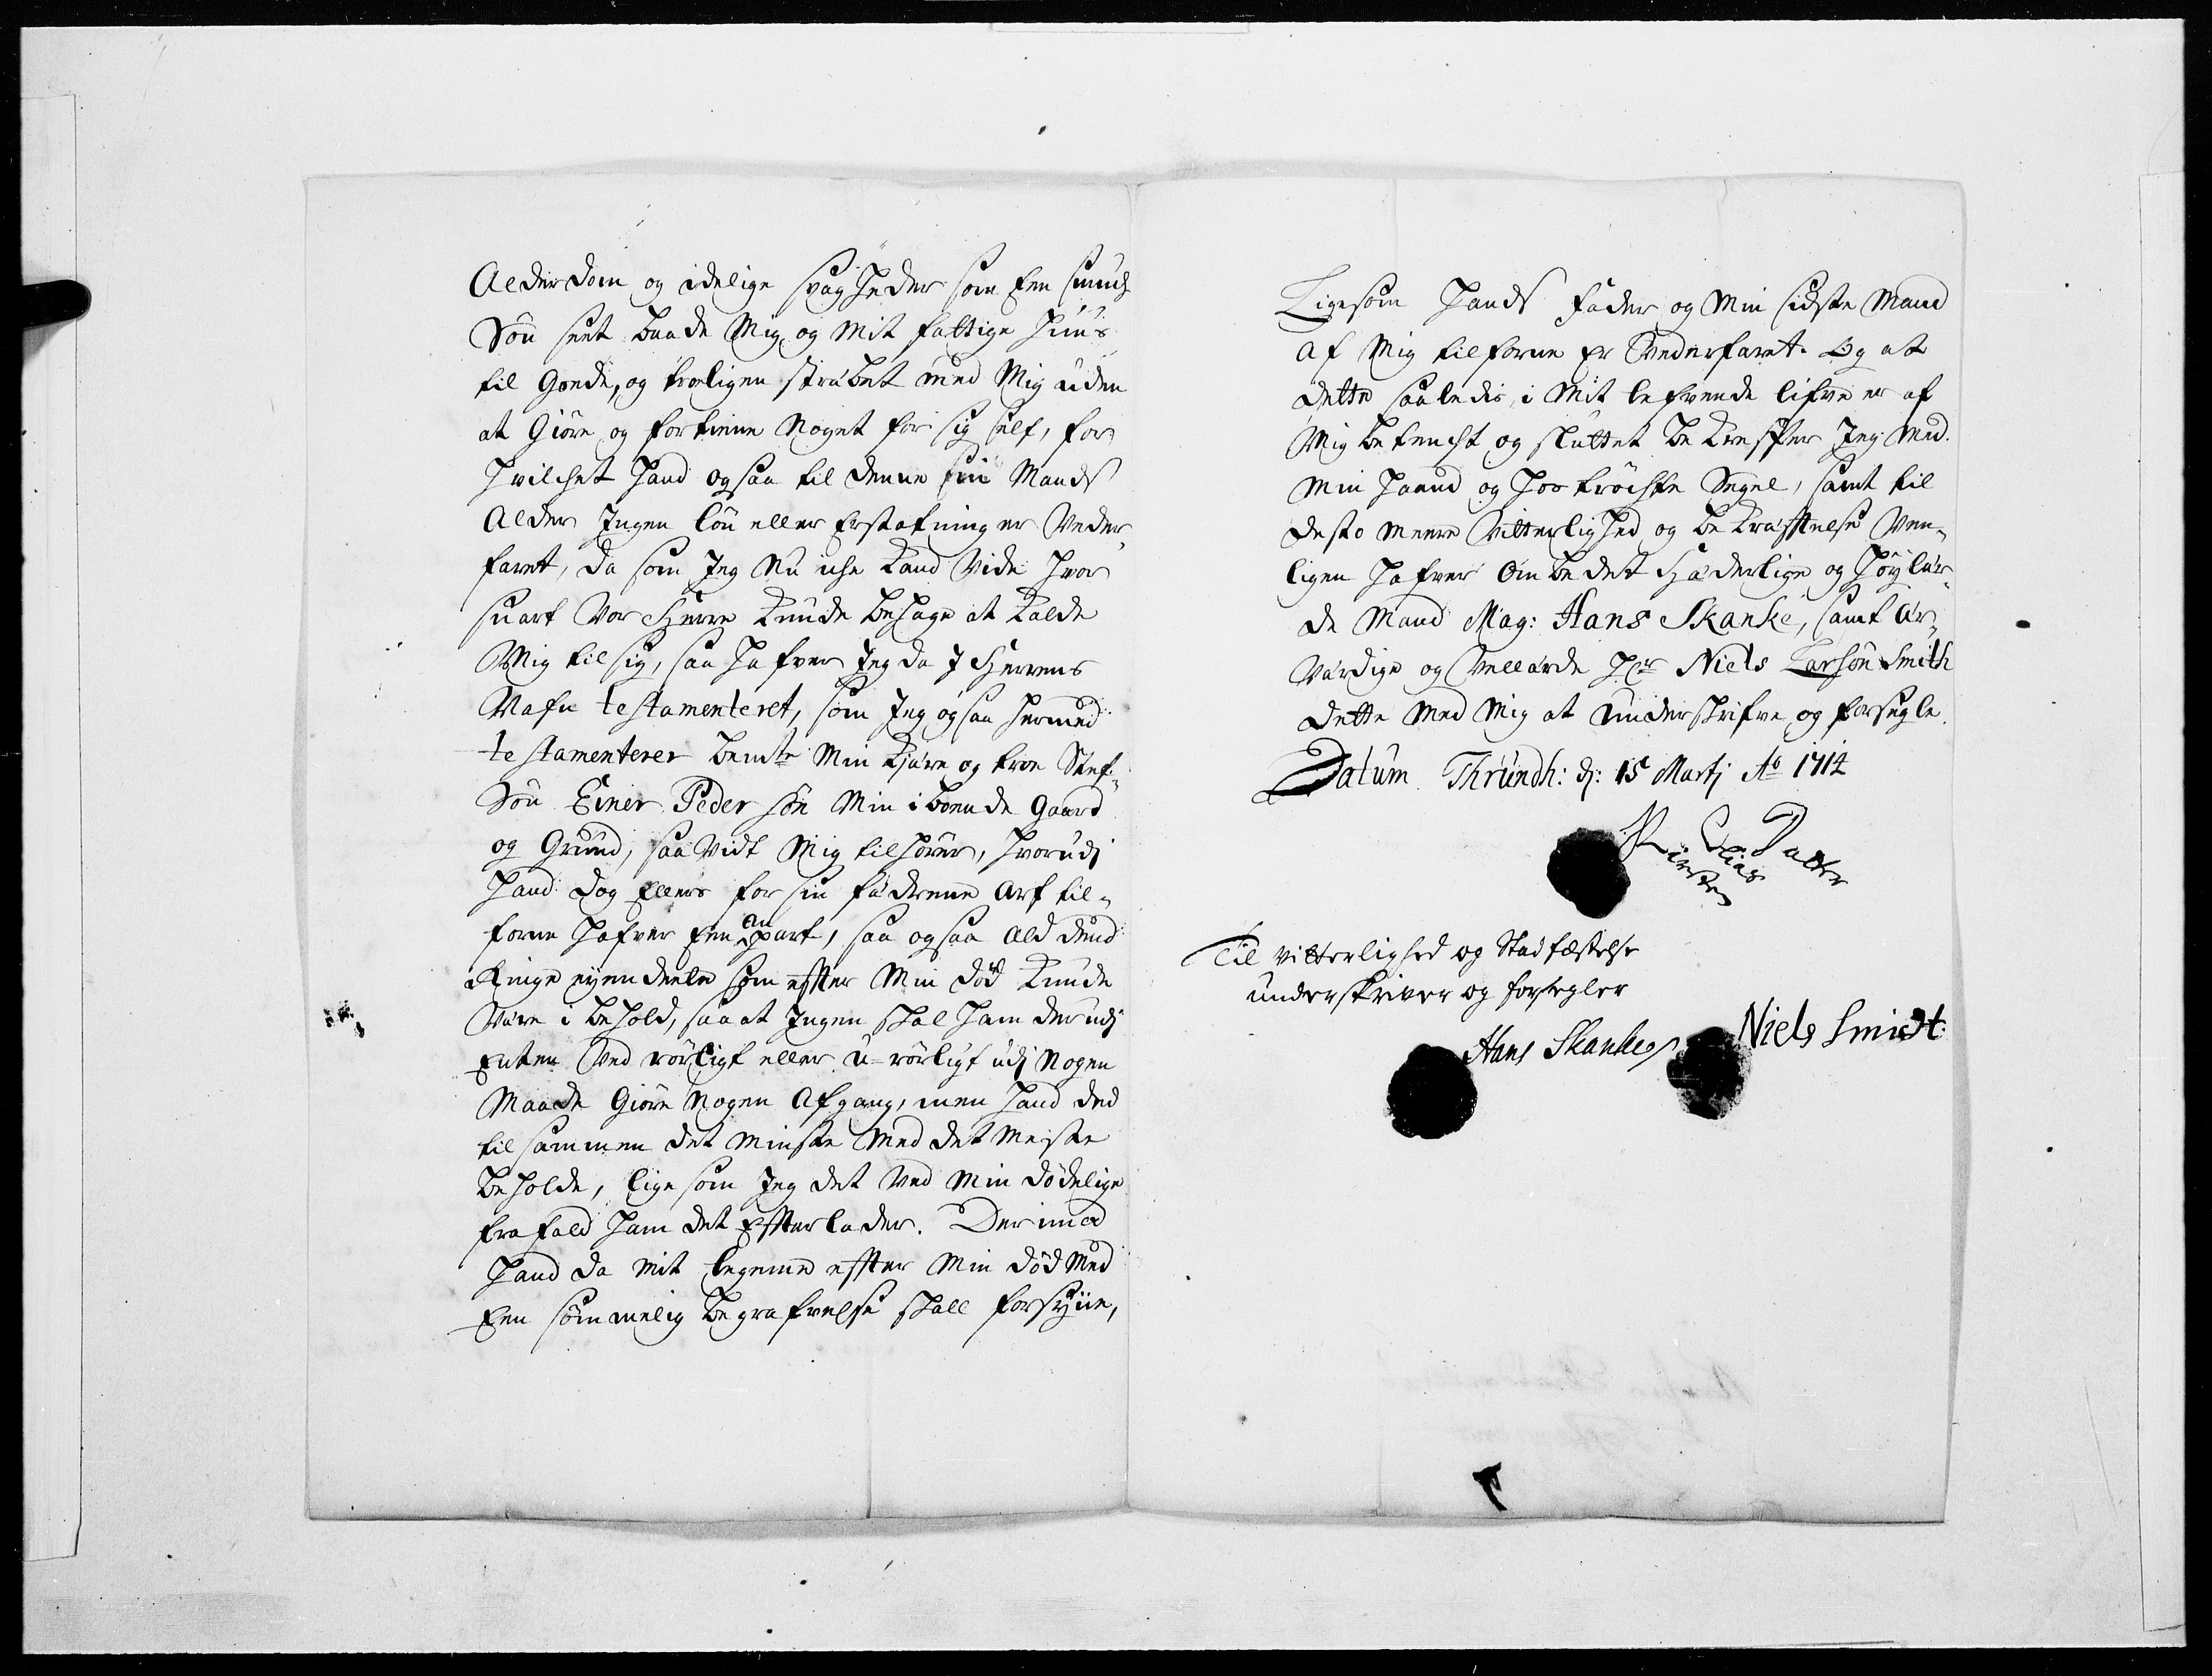 Alderdom og idelige svagheder som een smuck
Søn seet baade Mig og Mit fattige Huus
til Goede, og troeligen stræbet med Mig uden
at Giøre og fortiene Noget for sig self, for
hvilchet hand ogsaa til denne sin Mands
Alder Ingen løn eller Erstatning er Veder-
faret, da som Jeg Nu iche Kand Vide hvor
snart Vor Herre Kunde behage at Kalde
Mig til sig, saa hafver Jeg da J Herrens
Nafn testamenteret, som Jeg ogsaa hermed
testamenterer bemte Min Kjære og troe Stef-
Søn Einer Pedersøn Min iboende Gaard
og Grund, saa Vidt Mig tilhører, hvorudj
hand dog Ellers for sin Fæderne Arf til-
forne hafver Een an part, saa ogsaa Ald dend
Ringe eyendeele som effter Min død Kunde
Være i behold, saa at Ingen skal ham derudj
Enten Ved rørligt eller u-rørligt udj Nogen
Maade Giøre Nogen Afgang, men hand ded
tilsammen det Minste Med det Meste
beholde, lige som Jeg det Ved Min dødelige
frafald ham det Effterlader. Derimod
hand da Mit legeme effter Min død Med
Een sømmelig begrafvelse skall forsyne,
Ligesom hands Fader og Min sidste Mand
Af Mig tilforne Er Vederfaret. Og at
dette saaledis i Mit lefvende lifve er af
Mig betencht og sluttet beKreffter Jeg Med
Min haand og hos trøchte Segel, samt til
desto meere Vitterlighed og beKræfftelse Ven-
ligen hafver Ombedet Hæderlige og Høylær-
de Mand Mag: Hans Skanke, samt Ær-
Værdige og Vellærde Hr Niels Larsøn Smith
dette Med Mig at Underskrifve og forsegle.
Datum Thrundh: dj: 15 Martj Ao 1714
Kirsten Elias Datter
Til vitterlighed og Stadfæstelse
underskriver og forsegler
Hans Skanke
Niels Smidt